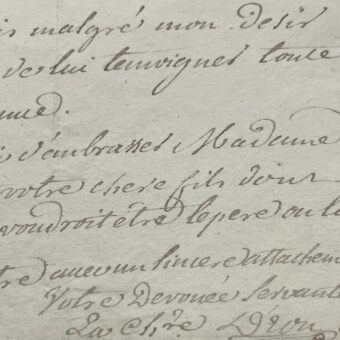 is malgré mon desir
de lui temoigner toute
d'embrasser Madame
votre chere fils dont
voudroit être le pere ou la
tre avec un sincere attachem
Votre Devouée Servante
La Ch.re D'Eon